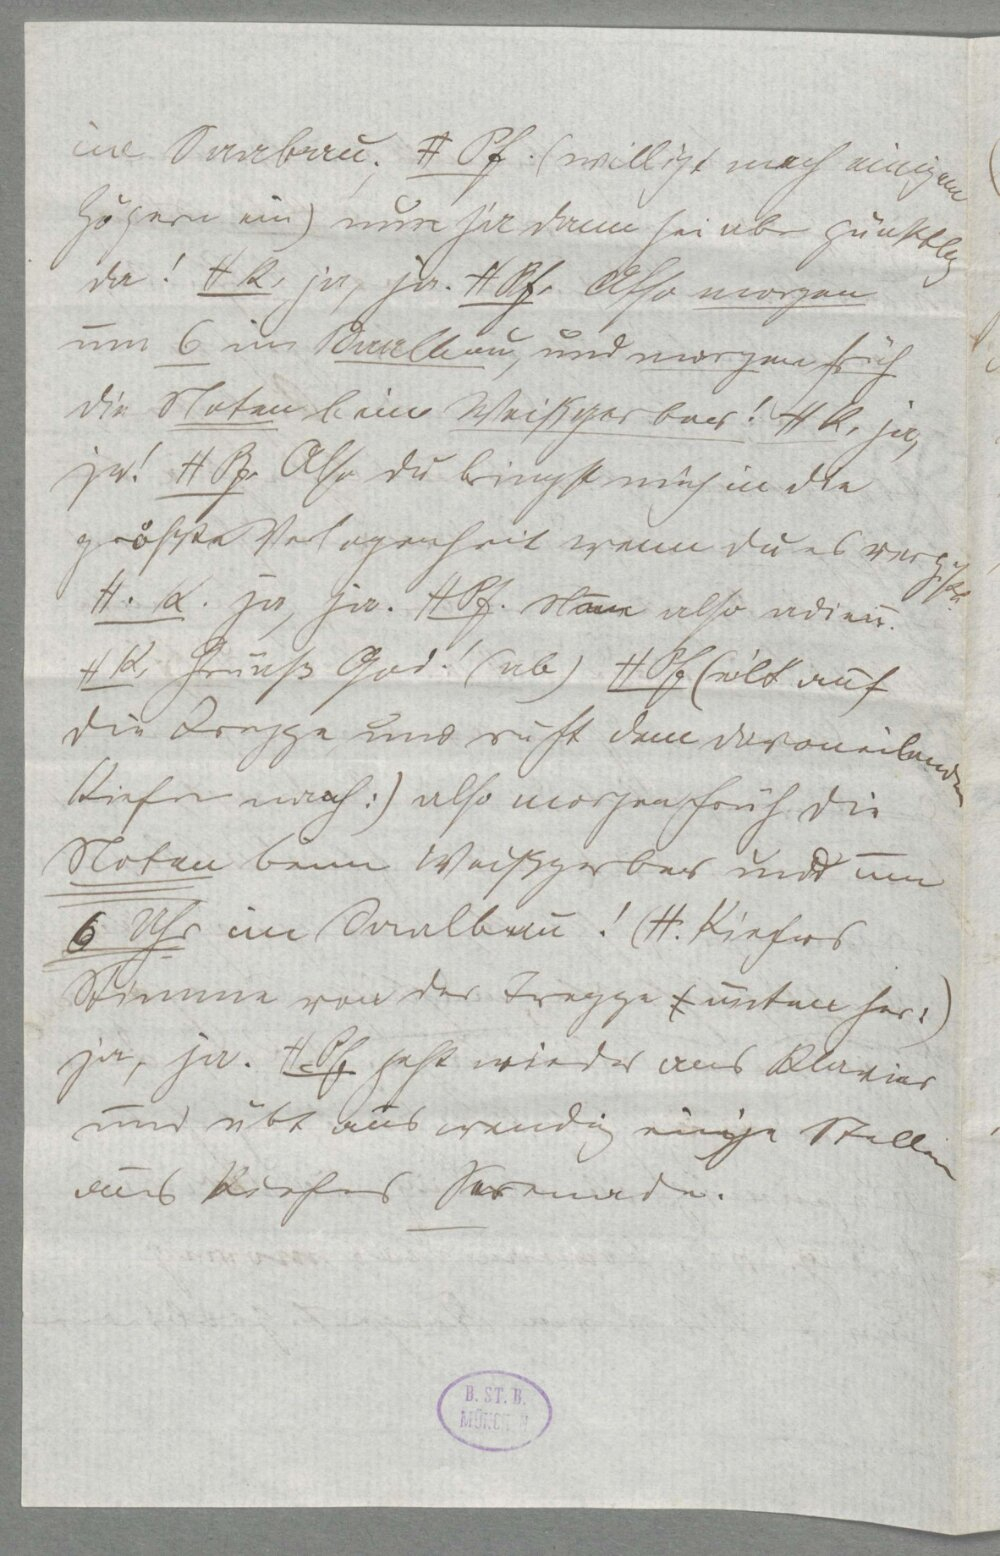 im Saalbau. H Pf. (willigt nach einigem
Zögern ein) nun ja dann sei aber pünktlich
da! H K. ja, ja. H Pf. Also morgen
um 6 im Saalbau, und morgen früh
die Noten beim Weißgerber! H K. ja,
ja! H Pf. Also du bringst mich in die
größte Verlegenheit wenn du es vergißt.
H. K. ja, ja. H Pf. Nun also adieu.
H K. Grüaß God! (ab) H Pf (eilt auf
die Treppe und ruft dem davoneilenden
Kiefer nach:) also morgen früh die
Noten beim Weißgerber und um
6 Uhr im Saalbau! (H. Kiefers
Stimme von der Treppe unten her:)
ja, ja. H. Pf geht wieder ans Klavier
und übt auswendig einige Stellen
aus Kiefers Serenade.
B. ST. B.
MÜNCHEN